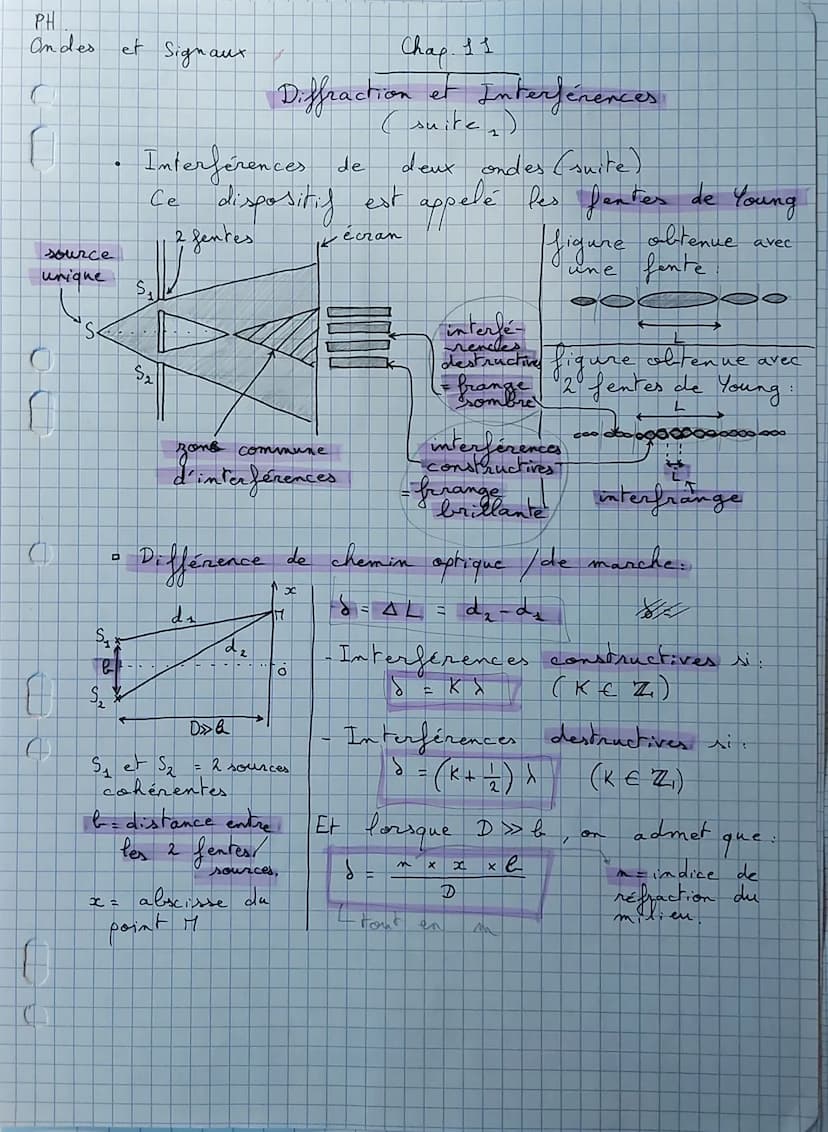 PH
Ondes et Signaux
Chap. 11
Diffraction et Interférences
(suite 2)
• Interférences de deux ondes (suite)
Ce dispositif est appelé les fentes de Young
source unique
2 fentes
écran
S1
S
S2
zone commune
d'interférences
interfé-
rences
destructives
= frange
sombre
interférences
constructives
= frange
brillante
figure obtenue avec
une fente :
L
figure obtenue avec
2 fentes de Young :
L
i
interfrange
Différence de chemin optique / de marche :
x
S1
d1
M
d2
b
O
S2
D≫b
S1 et S2 = 2 sources
cohérentes
b = distance entre
les 2 fentes/
sources.
x = abscisse du
point M
δ = ΔL = d2 - d1
- Interférences constructives si :
δ = K λ (K ∈ ℤ)
- Interférences destructives si :
δ = (K + 1/2) λ (K ∈ ℤ)
Et lorsque D ≫ b, on admet que :
δ = n × x × b / D
tout en m
n = indice de
réfraction du
milieu.